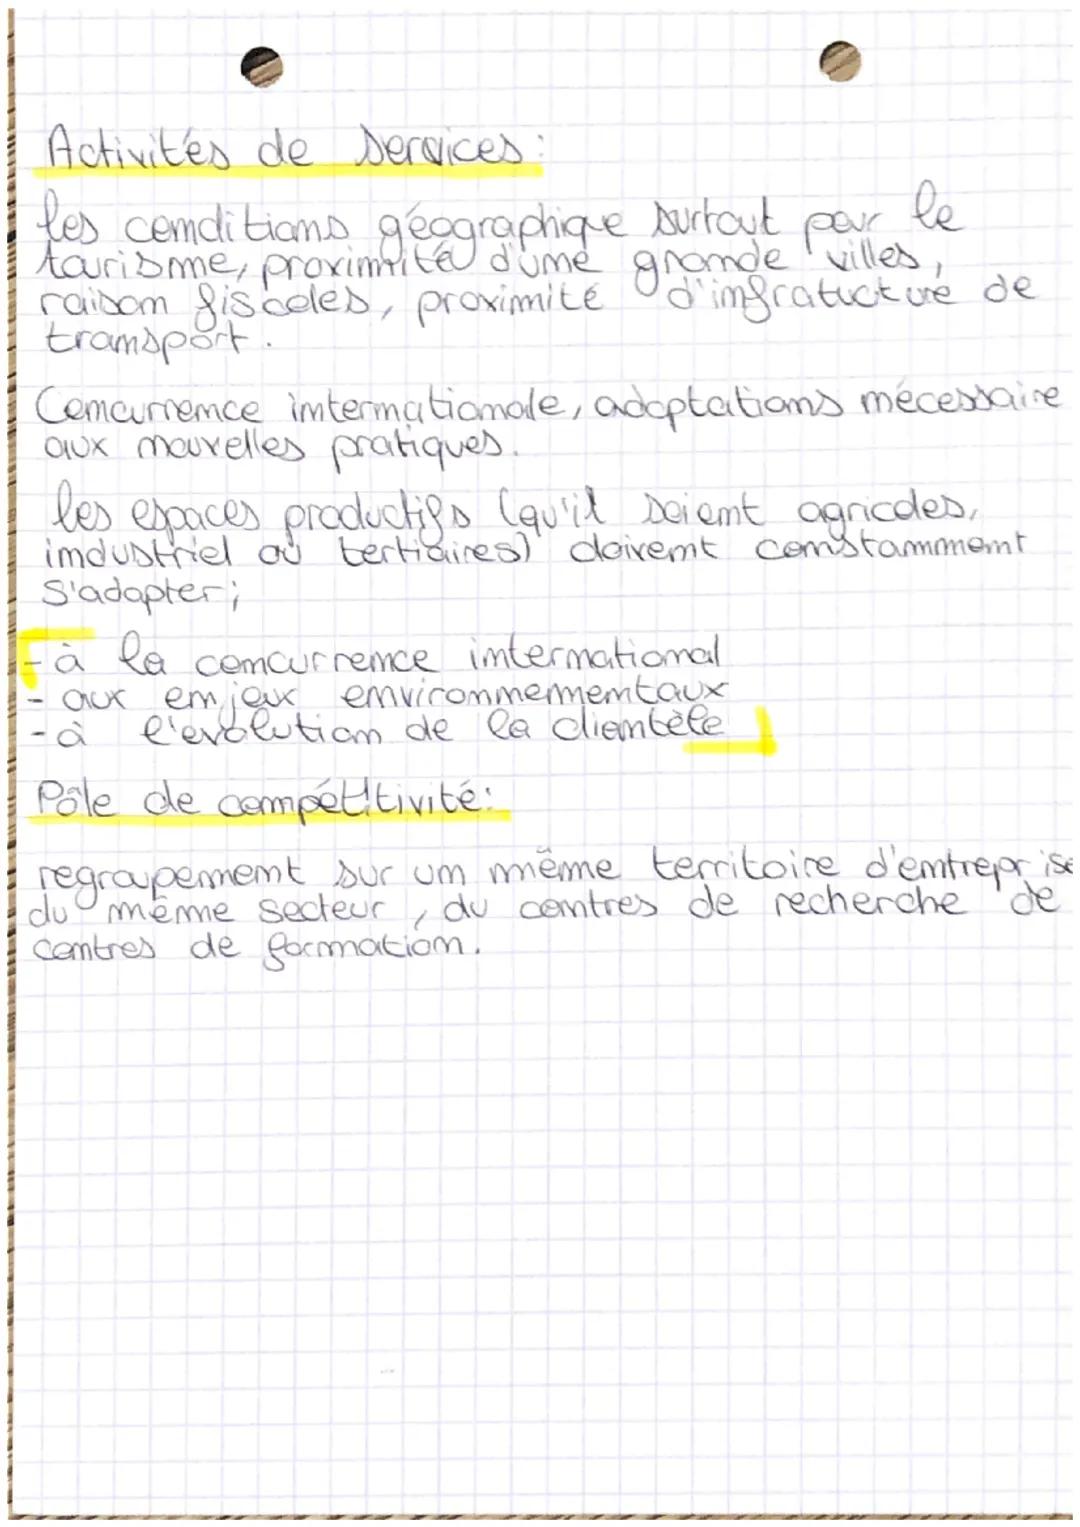 Activités de services :
les conditions géographique surtout pour le
tourisme, proximité d'une grande villes,
raison fiscales, proximité d'infratucture de
transport.
Concurrence internationale, adaptations nécessaire
aux nouvelles pratiques.
les espaces productifs (qu'il soient agricoles,
industriel ou tertiaires) doivent constamment
s'adapter ;
- à la concurrence international
- aux enjeux environnementaux
- à l'evolution de la clientèle
Pôle de compétitivité :
regroupement sur un même territoire d'entreprise
du même secteur, du centres de recherche de
centres de formation.